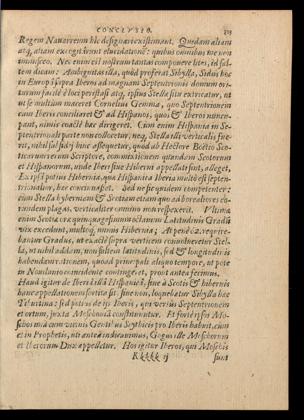 CONCLVSIO.
Regem Navarrenum hîc designari existimant. Quidam aliam
atq, aliam excogitarunt elucidationẽ: quibus omnibus me non
immisceo. Nec enim est nostrum tantas componere lites, id sal-
tem dicam: Ambiguitas illa, quòd proferat Sibylla, Sidus hoc
in Europa supra Iberos ad magnam Septentrionis domum ori-
turum
ut se multum maceret Cornelius Gemma, quo Septentrionem
cum Iberis conciliaret & ad Hispanos, quos & Iberos nuncu-
pant, nimis coactè hæc dirigeret. Cum enim Hispania in Se-
ptentrionali parte non collocetur, neq, Stella illi verticalis fue-
rit, nihil
ticarum rerum Scriptore, commixtionem quandam Scotorum
et Hispanorum, unde Iberi sive Hiberni appellati sint, alleget,
Ex ipsa patria Hibernia, quæ Hispania Iberia multò est septen-
trionalior, hæc
cum Stella hybernam & Scotiam etiam quo ad borealiores eo-
rundem plagas, verticaliter omnino non respexerit. Ultima
enim Scotia ora quinquagesimum octavum Latitudinis Gradũ
vix excedunt, multoq, minus Hibernia: At penè 62. require-
bantur Gradus, ut exactè supra verticem convolveretur Stel-
la, ut nihil addam, non saltem latitudinis, sed & longitudinis
habendam rationem, quòad principale aliquo tempore, ut pote
in Novilunio coincidente contingetet, prout antea fecimus.
Haud igitur de Iberia illa Hispanicâ, sive à Scotis & hibernis
hunc appellationem sortita sit, sive non, loquebatur Sibylla hæc
Tyburtina: sed potius de ijs Iberis, qui versus Septentrionem
et ortum, juxta Moschovia constituuntur. Et fortè ipsos Mo-
schos unà cum vicinis Gentibus Scythicis pro Iberis habuit, cum
et in Prophetis, uti antea indicavimus, Gog ille Moschorum
et Iberorum Dux appelletur. Hos igitur Iberos, qui Moschis
Kkkkk ij sunt